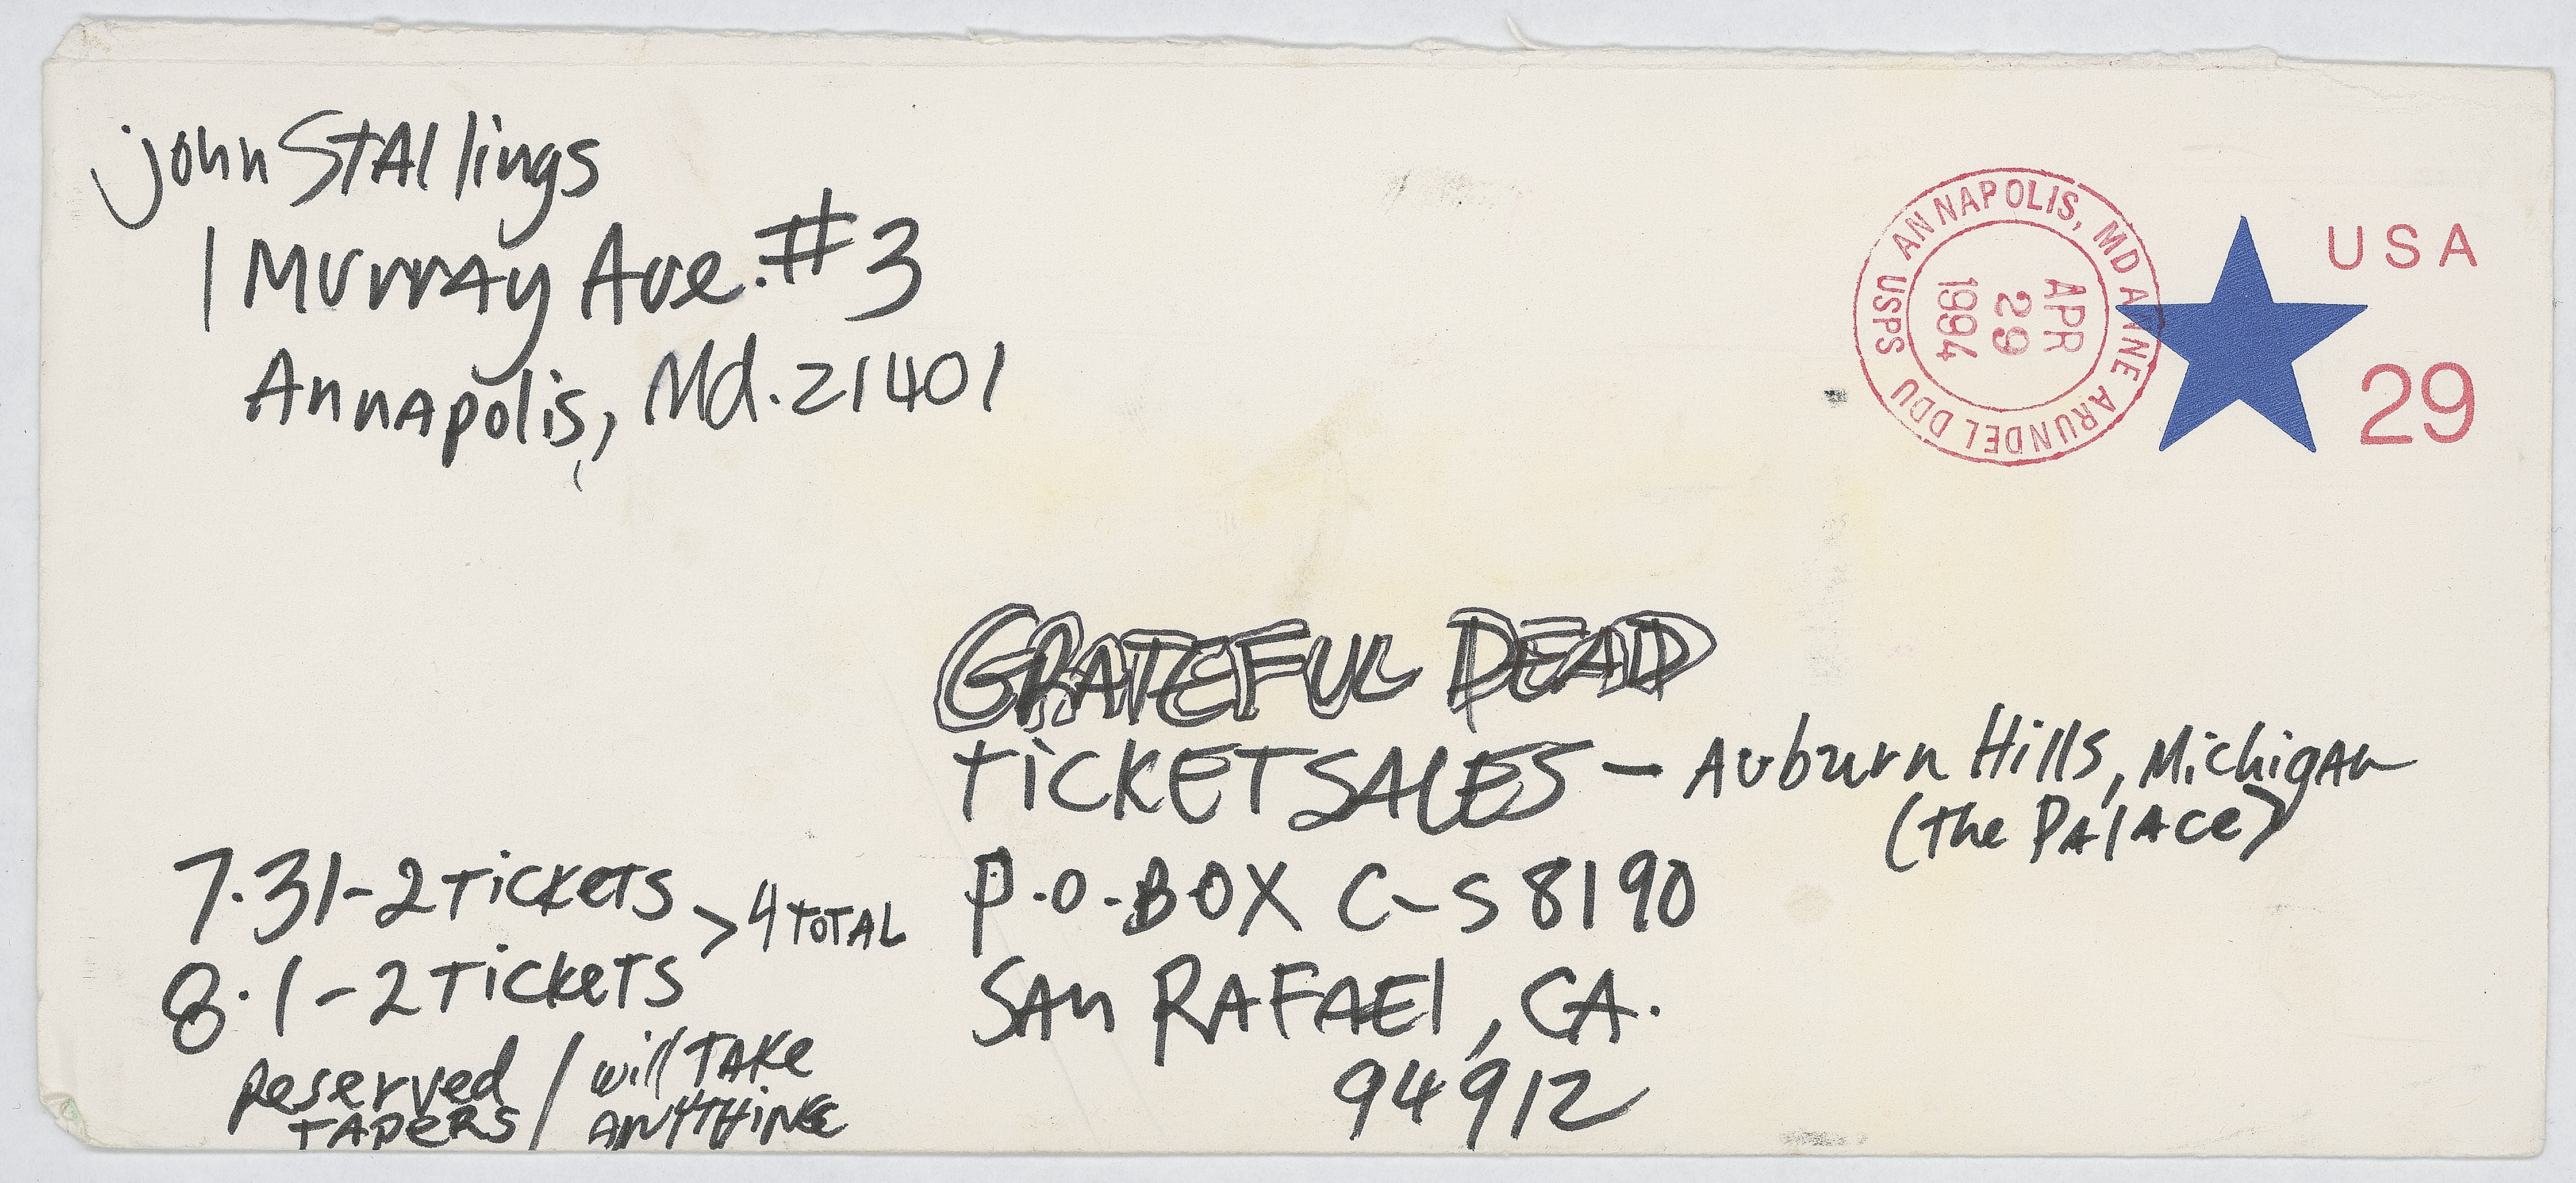 john STALlings
1 Murray Ave. #3
Annapolis, Md. 21401
USPS ANNAPOLIS, MD ANNE ARUNDEL DDU
APR
29
1994
USA
29
GRATEFUL DEAD
TICKET SALES – Auburn Hills, Michigan
(The PALACE)
P.O. BOX C-S 8190
SAn RAFAEl, CA.
94912
7.31-2 TICKETS
> 4 TOTAL
8.1-2 TICKETS
Reserved / will TAKE
TAPERS / ANYTHING